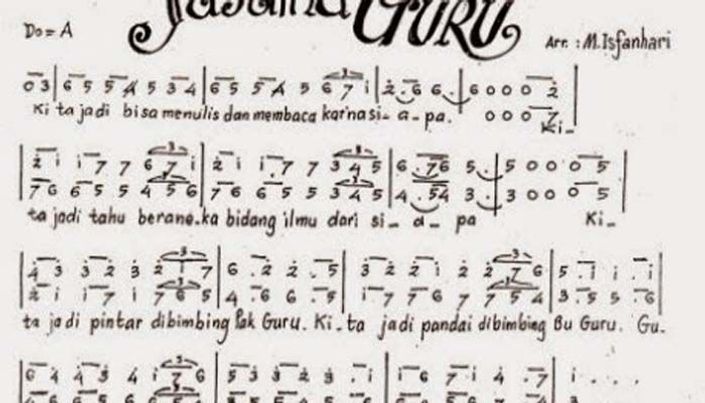 Jasamu GURU
Do = A
Arr. : M. Isfanhari
0 3 | 6 5 5 4 5 3 4 | 6 5 5 4 5 6 7 i | 2 . 6 6 . | 6 0 0 0 2
Ki ta jadi bisa menulis dan membaca kar'na si- a- pa.
0 0 0 7
Ki-
2 i i 7 7 6 7 i | 2 i i 7 7 3 4 5 | 6 . 76 5 . | 5 0 0 0 5
7 6 6 5 5 4 5 6 | 7 6 6 5 5 3 4 5 | 4 . 54 3 . | 3 0 0 0 5
ta jadi tahu berane-ka bidang ilmu dari si- a- pa Ki-
4 3 3 2 3 2 i 7 | 6 . 2 2 . 5 | 3 2 2 i 2 2 7 6 | 5 . i i . i
2 i i 7 i 7 6 5 | 4 . 6 6 . 5 | i 7 7 6 7 7 5 4 | 3 . 5 5 . 6
ta jadi pintar dibimbing Pak Guru. Ki-ta jadi pandai dibimbing Bu Guru. Gu-
6 4 4 3 4 i 7 6 | 5 3 3 2 3 . i | i 6 7 i 4 . 7 | i . . .